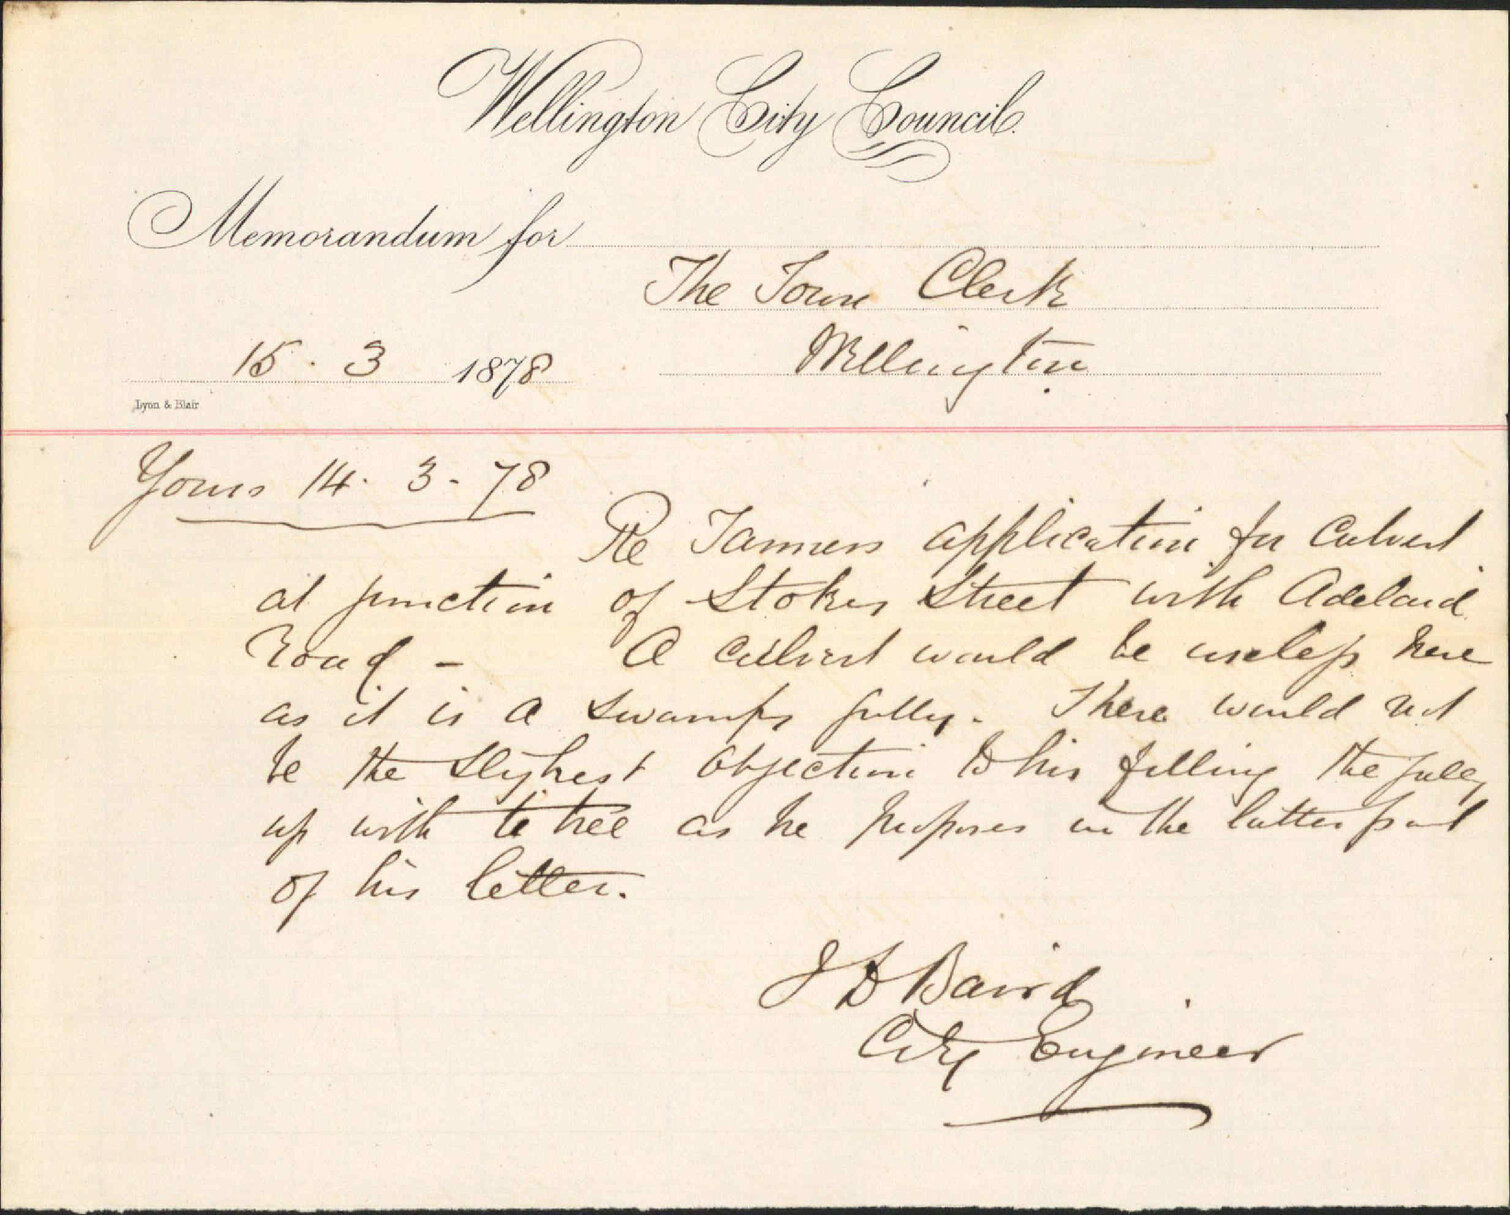 Wellington City Council.
Memorandum for
The Town Clerk
Wellington.
15 . 3 1878
Lyon & Blair
Yours 14. 3. 78
Re Tanners application for Culvert
at junction of Stokes Street with Adelaid
Road - A culvert would be useless here
as it is a swampy gully. There would not
be the slighest objection to his filling the gully
up with ti tree as he proposes in the latter part
of his letter.
J D Baird
City Engineer